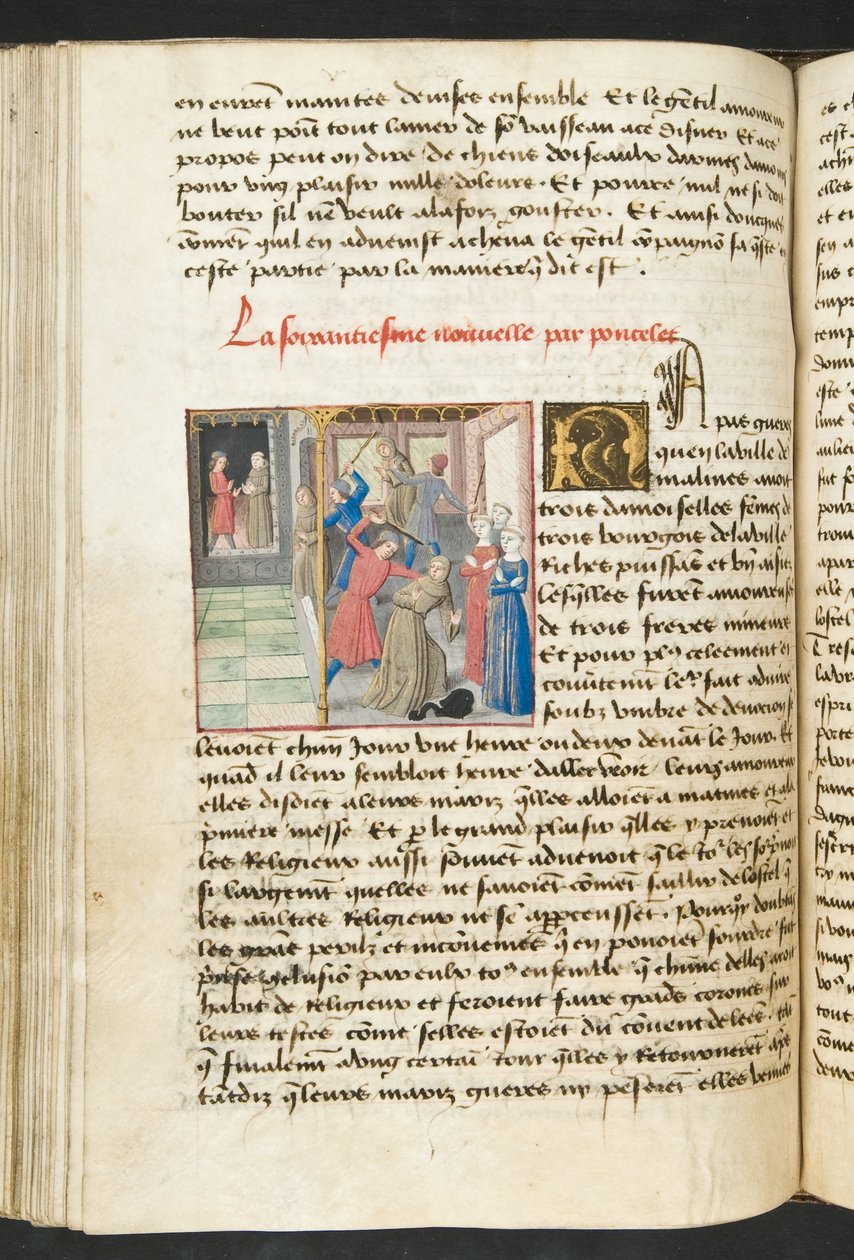 en eurēt maintes devises ensemble Et le gētil amoureux
ne beut poīt tout lamer de sō vaisseau a ce disner Et a ce
propos peut on dire de chiens doiseaulx darmes damours
pour vng plaisir mille doleurs. Et pource nul ne si doit
bouter sil nē veult a la foiz gouster. Et ainsi doncques
cōmēt quil en advenist acheva le gētil cōpaignō sa q̄ste en
ceste partie par la maniere q̄ dit est.
La soixantiesme nouvelle par poncelet
N
A pas gueres
quen la ville de
malines avoit
trois damoiselles fēmes de
trois bourgois de la ville
Riches puissās et biē aisiez
lesq̄lles furēt amoureuses
de trois freres mineurs
Et pour plꝰ celeement et
couvtemēt leur fait
soubz vmbre de devocion se
levoiēt chūn Jour vne heure ou deux devāt le Jour. Et
quād il leur sembloit heure daller veoir leurs amoureux
elles disoiēt a leurs mariz q̄lles alloiēt a matines et a la
p̄miere messe Et p le grand plaisir q̄lles y prenoiēt et
les Religieux aussi souvēt advenoit q̄ le Jour les
si largemēt quelles ne savoiēt cōmēt saillir de lostel q̄
les aultres Religieux ne sē apperceussēt. Pourquoy doubtās
les grās perilz et incōveniēs q̄ en povoiēt sourdre fut
p̄nse 9clusiō par eulx toꝰ ensemble q̄ chūne delles avroit
habit de Religieux et feroient faire grādes corones sur
leurs testes cōme selles estoiēt du cōvent de leēs.
q̄ finalemēt a vng certaī Jour q̄lles y Retournerēt apres
tātdiz q̄ leurs mariz gueres ny pēsoiēt elles venues